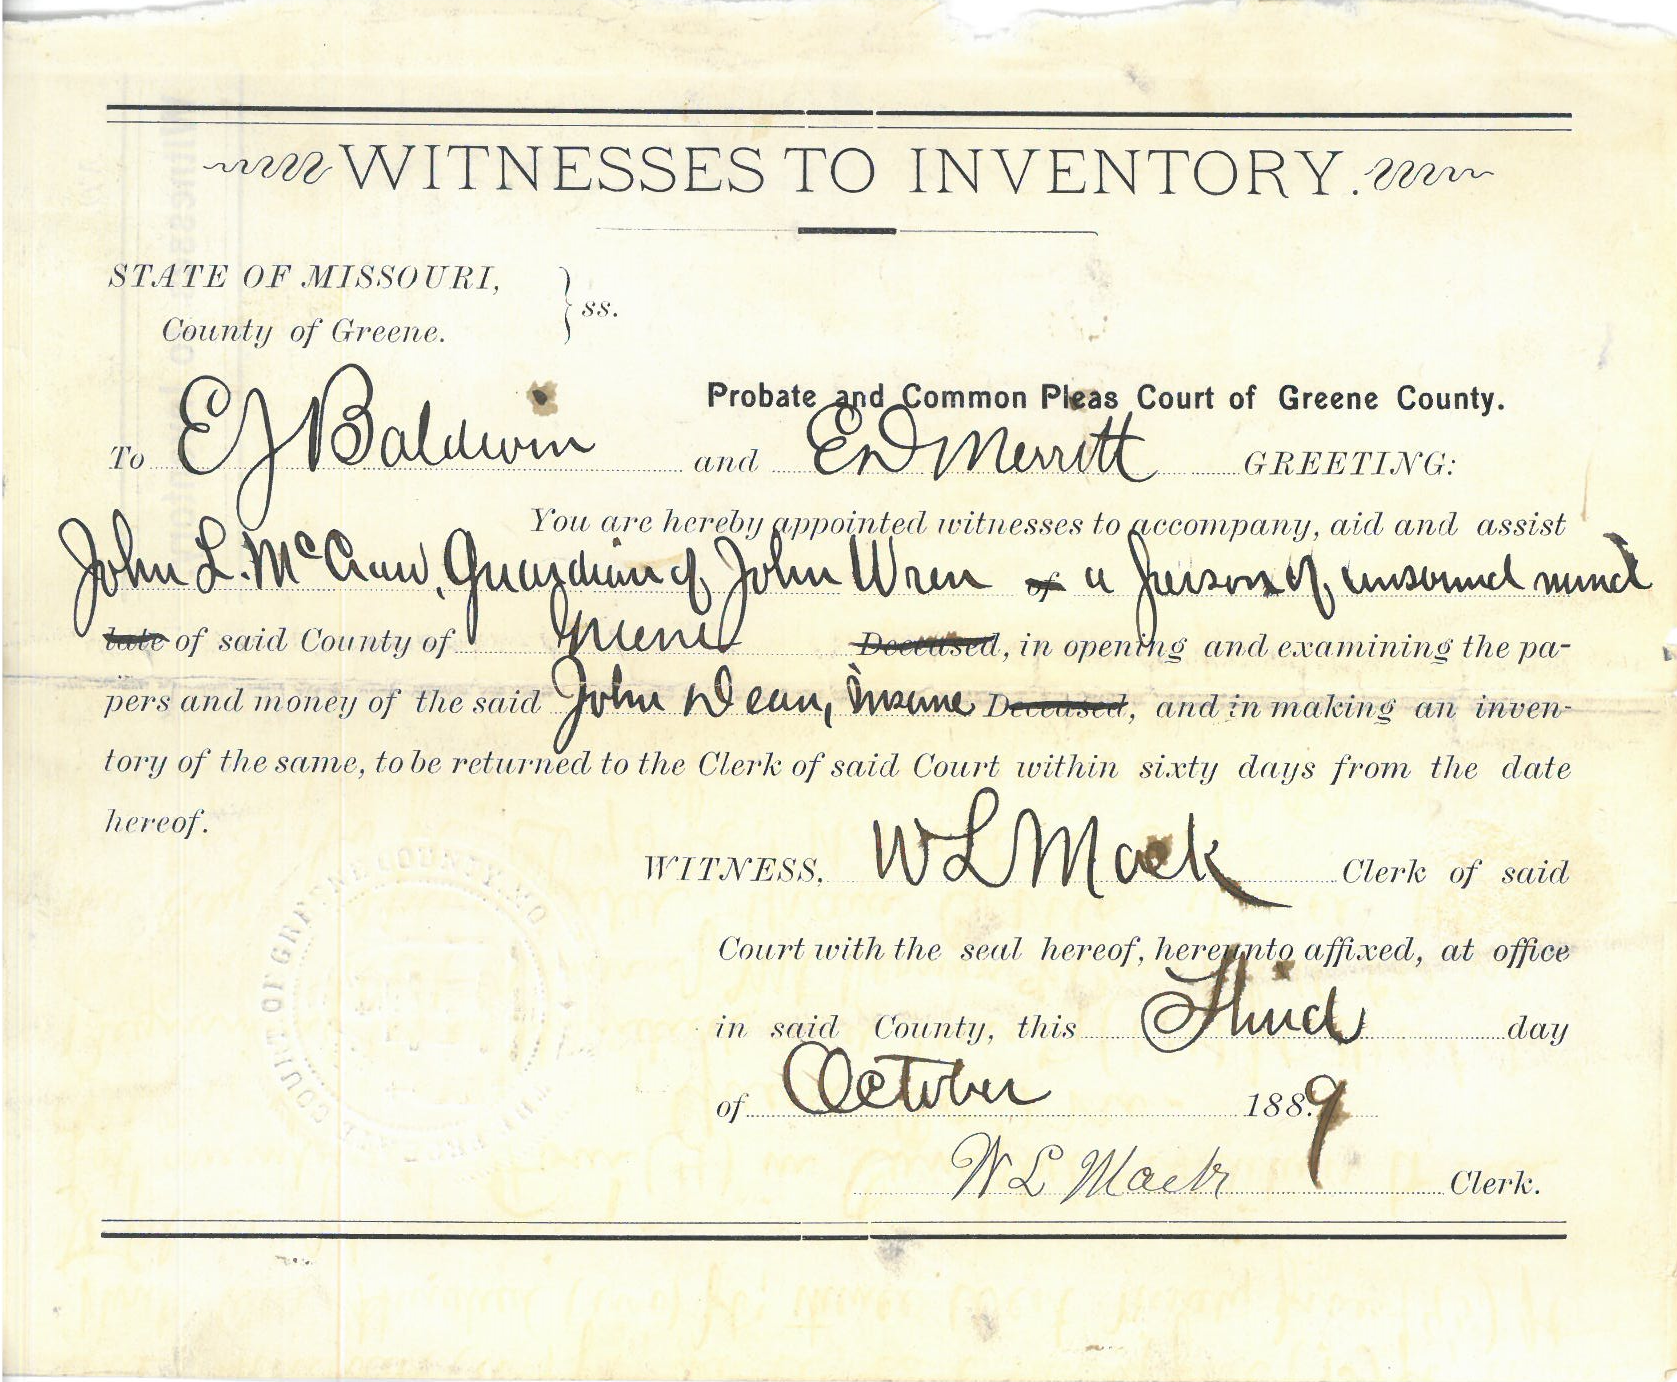 WITNESSES TO INVENTORY.
STATE OF MISSOURI,
County of Greene.
ss.
Probate and Common Pleas Court of Greene County.
To E J Baldwin and E D Merritt GREETING:
You are hereby appointed witnesses to accompany, aid and assist
John L. McCraw, Guardian of John Wren of a person of unsound mind
late of said County of Greene Deceased, in opening and examining the pa-
pers and money of the said John Wean, insane Deceased, and in making an inven-
tory of the same, to be returned to the Clerk of said Court within sixty days from the date
hereof.
WITNESS, W L Mack Clerk of said
Court with the seal hereof, hereunto affixed, at office
in said County, this Third day
of October 1889
W L Mack Clerk.
COURT OF GREENE COUNTY MO